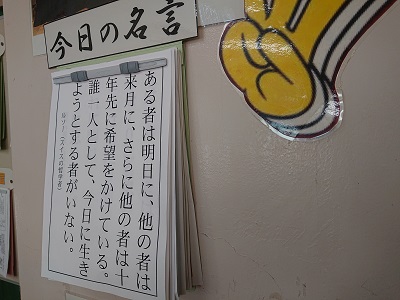 今日の名言
ある者は明日に、他の者は
来月に、さらに他の者は十
年先に希望をかけている。
誰一人として、今日に生き
ようとする者がいない。
ルソー（スイスの哲学者）